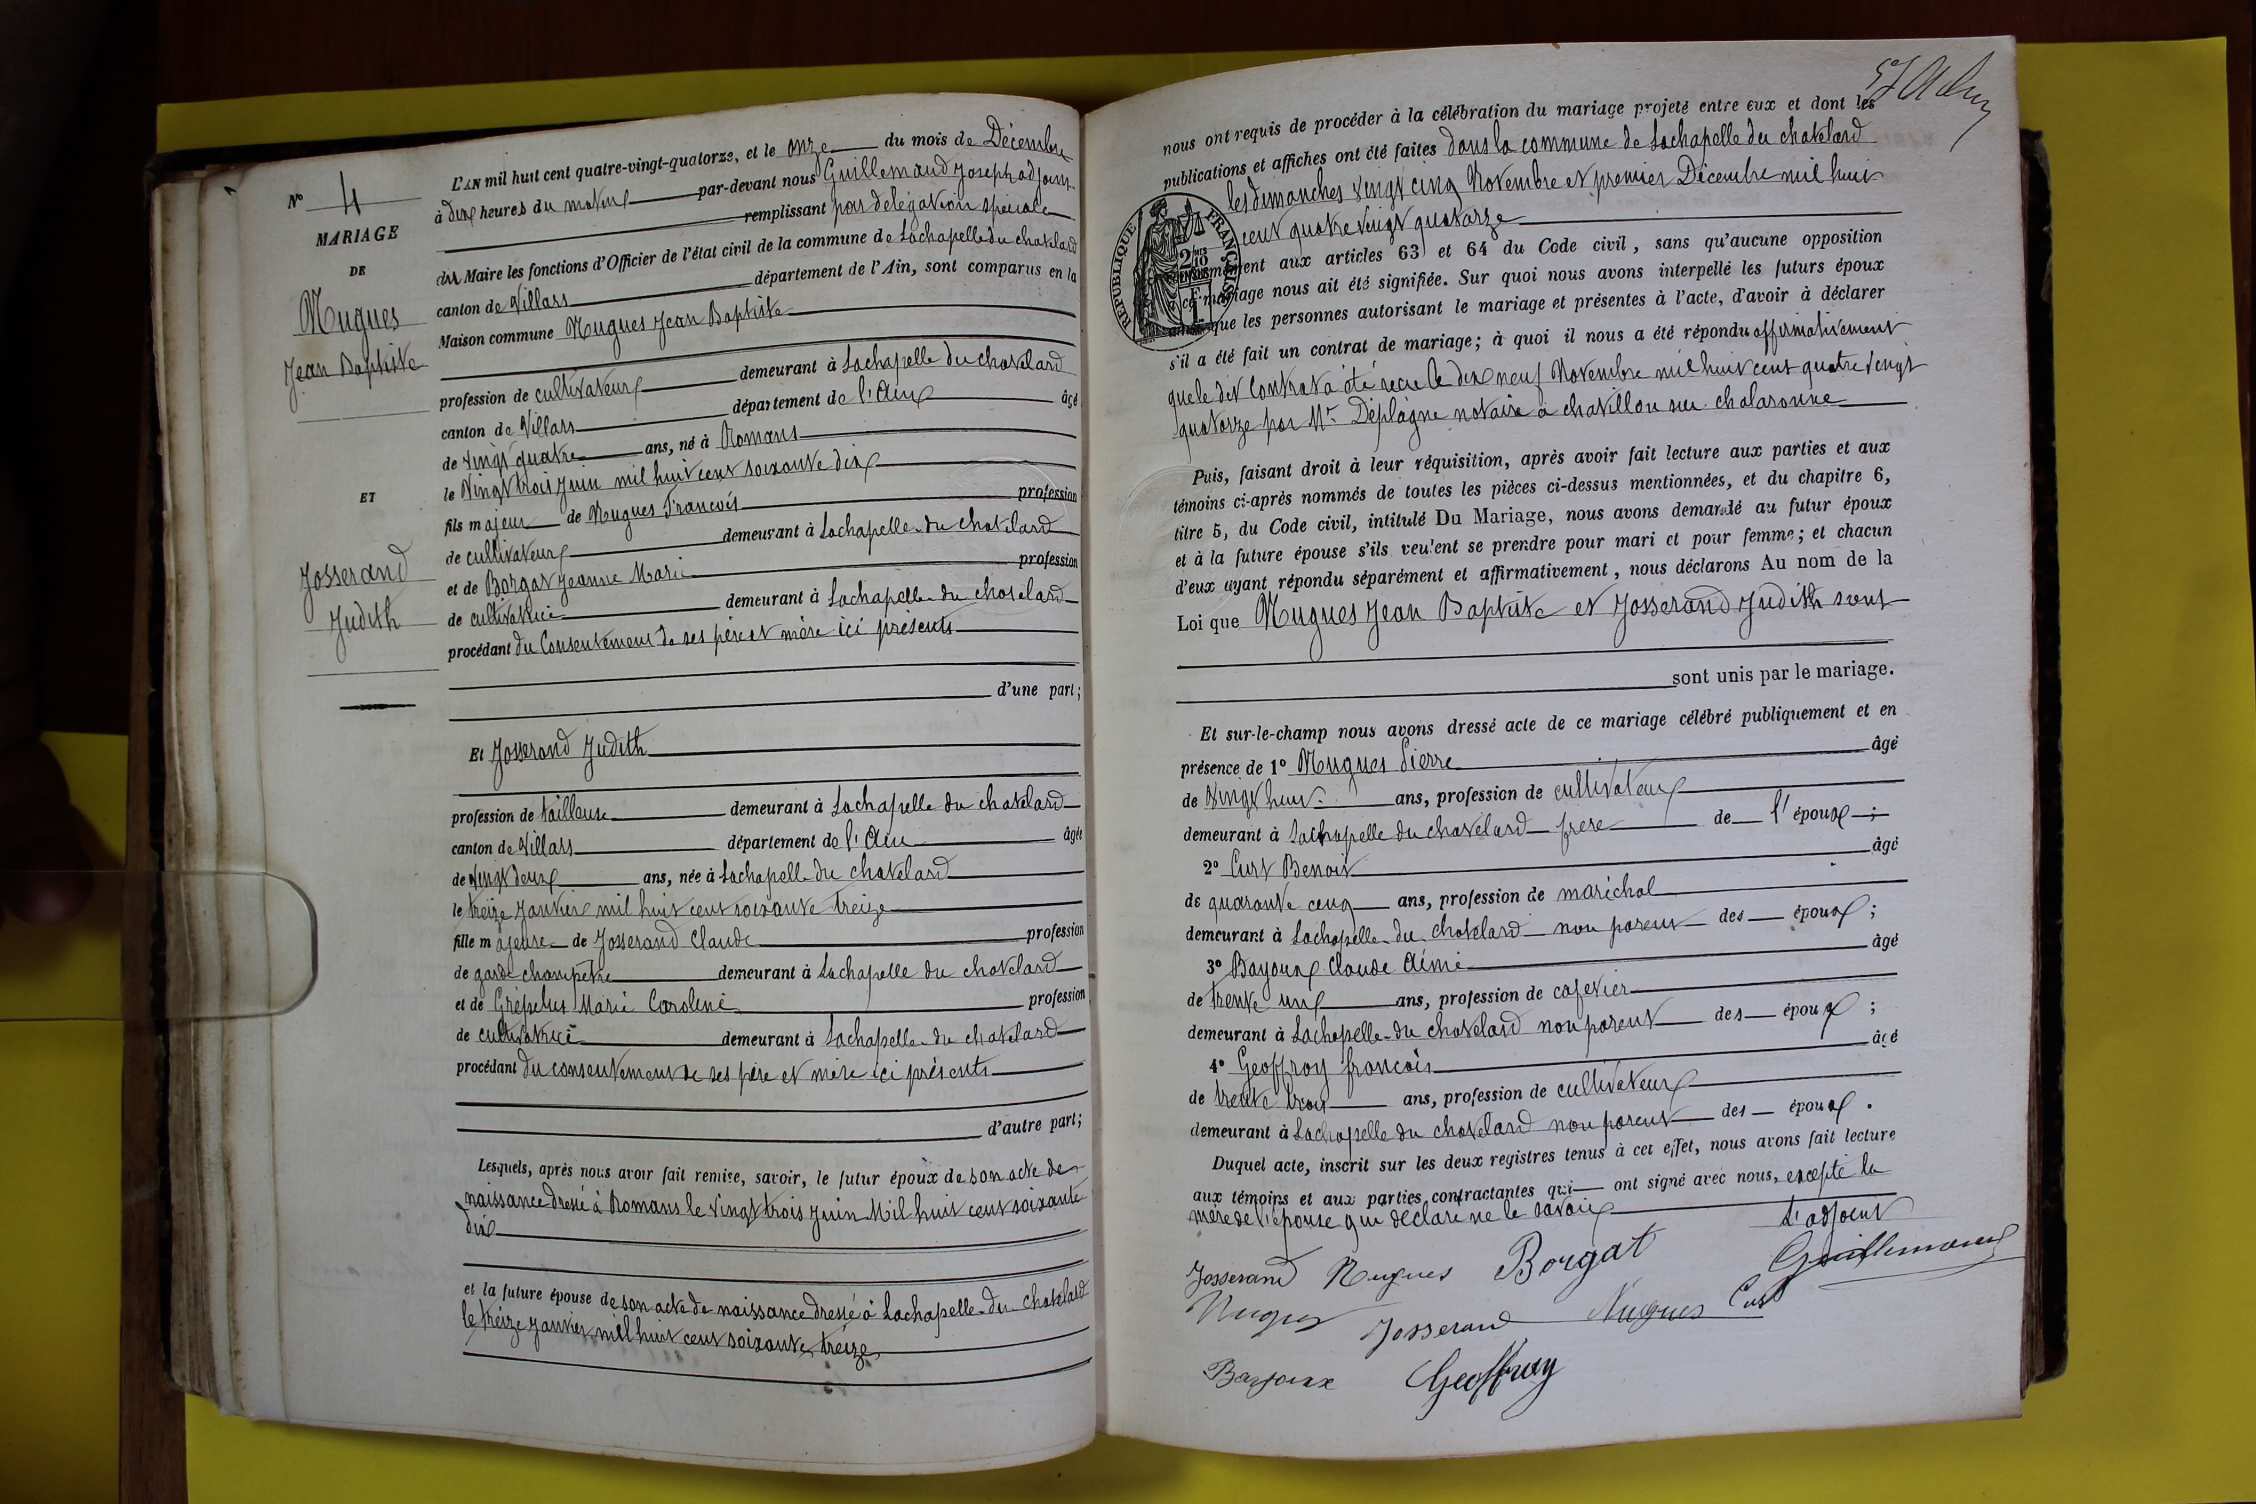 N° 4
MARIAGE
DE
Nugues
Jean Baptiste
ET
Josserand
Judith
L'AN mil huit cent quatre-vingt-quatorze, et le onze du mois de Décembre
à dix heures du matin par-devant nous Guillemaud Joseph adjoint
remplissant par délégation spéciale
du Maire les fonctions d'Officier de l'état civil de la commune de Lachapelle du chatelard
canton de Villars département de l'Ain, sont comparus en la
Maison commune Nugues Jean Baptiste
profession de cultivateur demeurant à Lachapelle du chatelard
canton de Villars département de l'Ain âgé
de vingt quatre ans, né à Romans
le vingt trois juin mil huit cent soixante dix
fils majeur de Nugues Francois profession
de cultivateur demeurant à Lachapelle du chatelard
et de Borgat Jeanne Marie profession
de cultivatrice demeurant à Lachapelle du chatelard
procédant du Consentement de ses père et mère ici présents
d'une part;
Et Josserand Judith
profession de tailleuse demeurant à Lachapelle du chatelard
canton de Villars département de l'Ain âgée
de vingt deux ans, née à Lachapelle du chatelard
le treize Janvier mil huit cent soixante treize
fille majeure de Josserand Claude profession
de garde champêtre demeurant à Lachapelle du chatelard
et de Marie Caroline profession
de cultivatrice demeurant à Lachapelle du chatelard
procédant du consentement de ses père et mère ici présents
d'autre part;
Lesquels, après nous avoir fait remise, savoir, le futur époux de son acte de
naissance dressé à Romans le vingt trois Juin Mil huit cent soixante
dix
et la future épouse de son acte de naissance dressé à Lachapelle du chatelard
le treize Janvier mil huit cent soixante treize
nous ont requis de procéder à la célébration du mariage projeté entre eux et dont les
publications et affiches ont été faites dans la commune de Lachapelle du chatelard
les dimanches vingt cinq Novembre et premier Décembre mil huit
cent quatre vingt quatorze
RÉPUBLIQUE FRANÇAISE
aux articles 63 et 64 du Code civil, sans qu'aucune opposition
à ce mariage nous ait été signifiée. Sur quoi nous avons interpellé les futurs époux
ainsi que les personnes autorisant le mariage et présentes à l'acte, d'avoir à déclarer
s'il a été fait un contrat de mariage; à quoi il nous a été répondu affirmativement
que le dit Contrat a été recu le dix neuf Novembre mil huit cent quatre vingt
quatorze par Mr. Déplagne notaire à chatillon sur chalaronne
Puis, faisant droit à leur réquisition, après avoir fait lecture aux parties et aux
témoins ci-après nommés de toutes les pièces ci-dessus mentionnées, et du chapitre 6,
titre 5, du Code civil, intitulé Du Mariage, nous avons demandé au futur époux
et à la future épouse s'ils veulent se prendre pour mari et pour femme; et chacun
d'eux ayant répondu séparément et affirmativement, nous déclarons Au nom de la
Loi que Nugues Jean Baptiste et Josserand Judith sont
sont unis par le mariage.
Et sur-le-champ nous avons dressé acte de ce mariage célébré publiquement et en
présence de 1° Nugues Pierre âgé
de vingt huit ans, profession de cultivateur
demeurant à Lachapelle du chatelard frere de l'époux;
2° Curt Benoit âgé
de quarante cinq ans, profession de maréchal
demeurant à Lachapelle du chatelard non parent des époux;
3° Bayoux Claude Aimé âgé
de trente un ans, profession de cafetier
demeurant à Lachapelle du chatelard non parent des époux;
4° Geoffroy francois âgé
de trente trois ans, profession de cultivateur
demeurant à Lachapelle du chatelard non parent des époux.
Duquel acte, inscrit sur les deux registres tenus à cet effet, nous avons fait lecture
aux témoins et aux parties contractantes qui ont signé avec nous, excepté la
mère de l'épouse qui déclare ne le savoir
L'adjoint
Josserand Nugues Borgat Guillemaud
Nugues Josserand Nugues Curt
Bayoux Geoffray